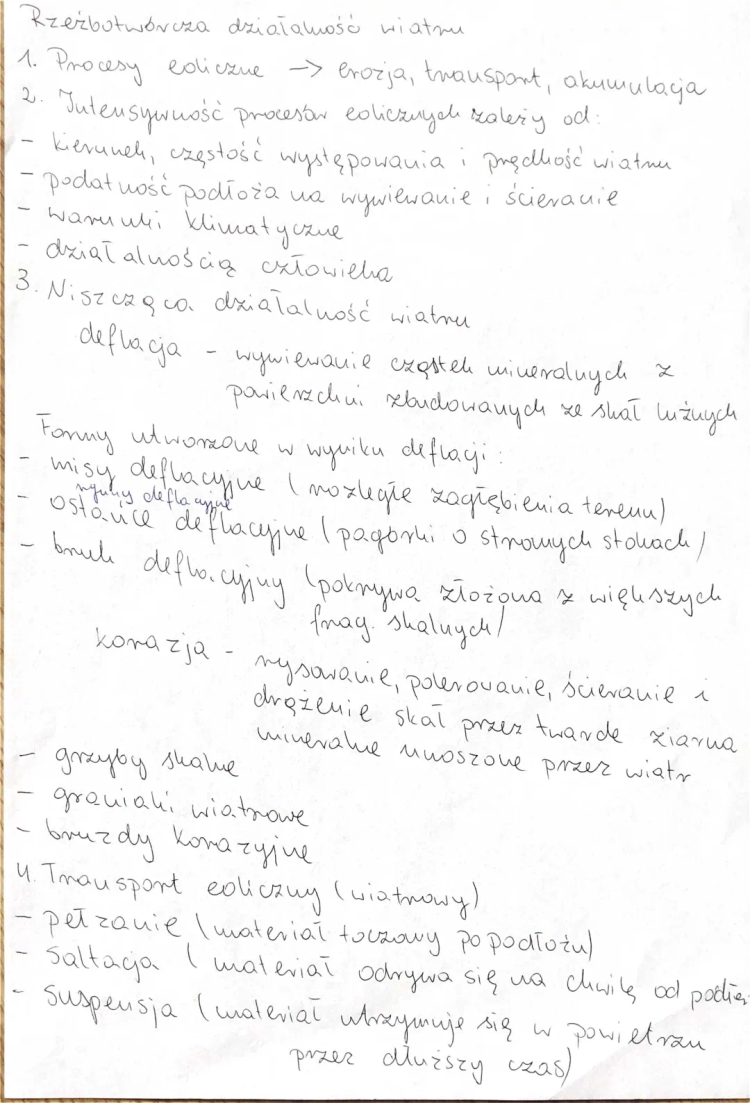 Rzeźbotwórcza działalność wiatru
1. Procesy eoliczne -> erozja, transport, akumulacja
2. Intensywność procesów eolicznych zależy od:
- kierunek, częstość występowania i prędkość wiatru
- podatność podłoża na wywiewanie i ścieranie
- warunki klimatyczne
- działalnością człowieka
3. Niszcząca działalność wiatru
deflacja - wywiewanie cząstek mineralnych z
powierzchni zbudowanych ze skał luźnych
Formy utworzone w wyniku deflacji:
- misy deflacyjne (rozległe zagłębienia terenu)
rynny deflacyjne
- ostańce deflacyjne (pagórki o stromych stokach)
- bruk deflacyjny (pokrywa złożona z większych
frag. skalnych)
korazja - rysowanie, polerowanie, ścieranie i
drążenie skał przez twarde ziarna
mineralne unoszone przez wiatr
- grzyby skalne
- graniaki wiatrowe
- bruzdy korazyjne
4. Transport eoliczny (wiatrowy)
- pełzanie (materiał toczowy po podłożu)
- saltacja (materiał odrywa się na chwilę od
- suspensja (materiał utrzymuje się w powietrzu
przez dłuższy czas)